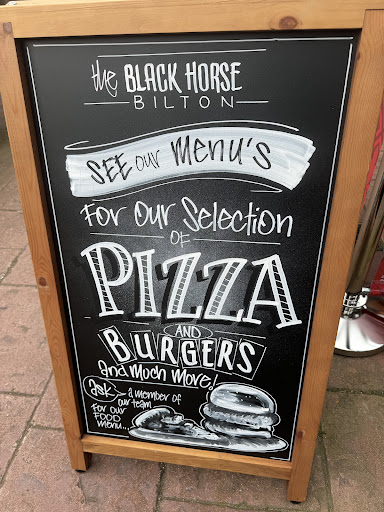 the BLACK HORSE
BILTON
SEE our MENU'S
For Our Selection
OF
PIZZA
AND
BURGERS
and Much More!
ask a member of
our team
For our
FOOD
Menu...